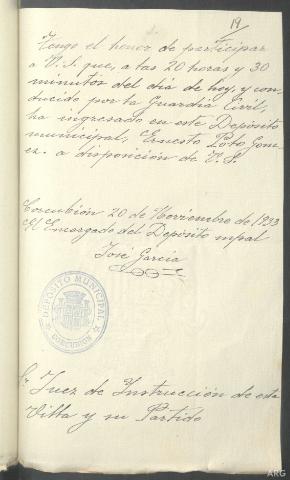 19
Tengo el honor de participar
a V.S. que, a las 20 horas y 30
minutos del dia de hoy, y con-
ducido por la Guardia Civil,
ha ingresado en este Depósito
municipal, Ernesto Poto Gom-
ez. a disposición de V.S.
Corcubión 20 de Noviembre de 1933
El Encargado del Depósito mpal
José Garcia
DEPÓSITO MUNICIPAL
CORCUBION
Sr. Juez de Instrucción de esta
Villa y su Partido
ARG